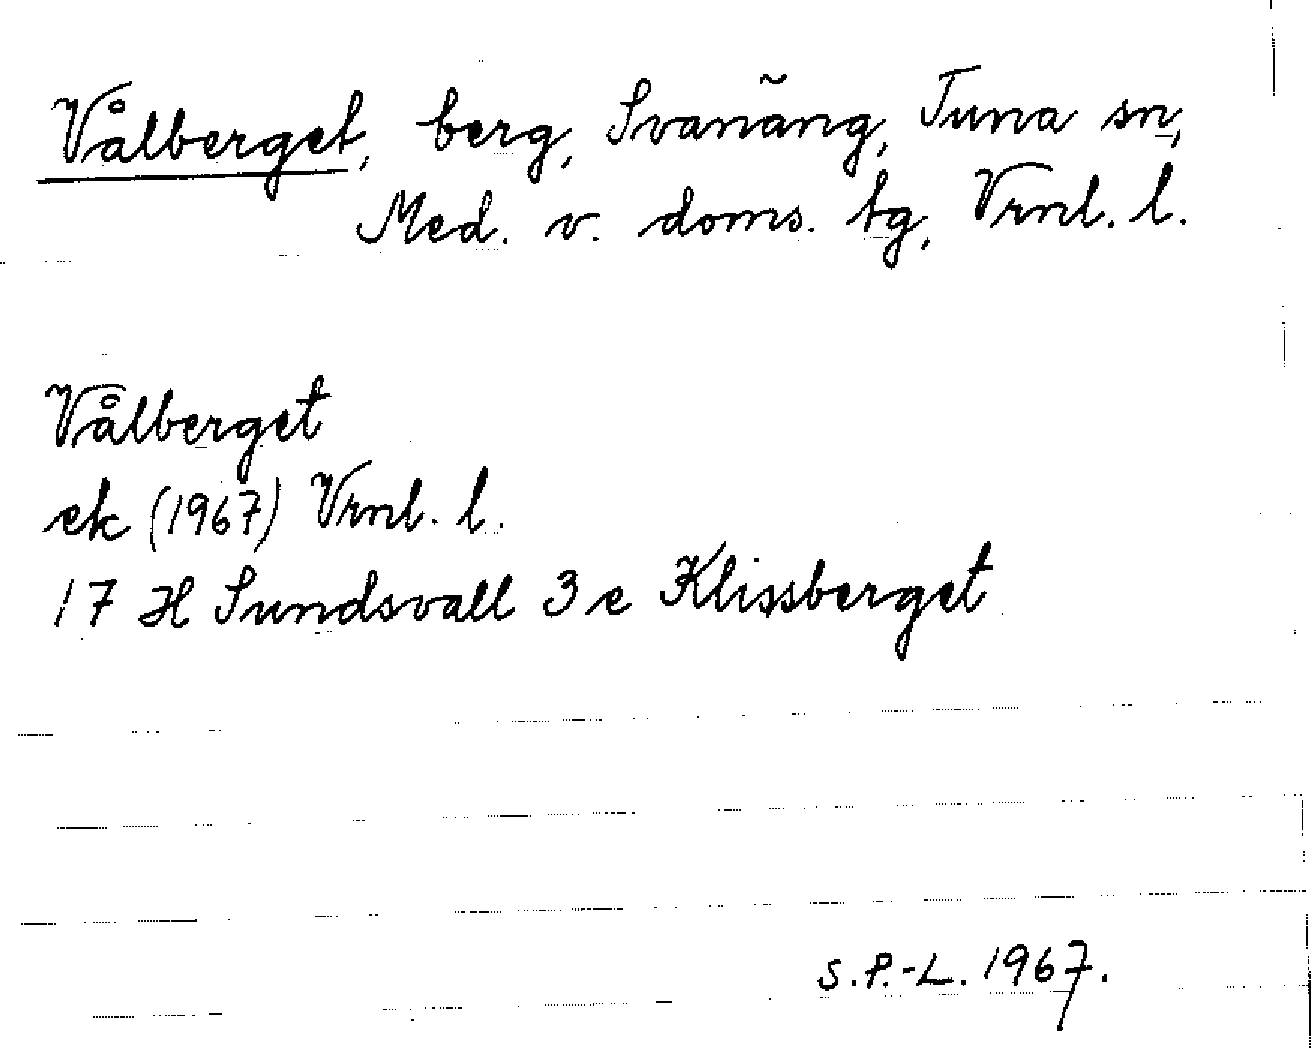 Vålberget, berg, Svanäng, Tuna sn,
Med. v. doms. tg, Vrnl. l.
Vålberget
ek (1967) Vrnl. l.
17 H Sundsvall 3 e Klissberget
S.P.-L. 1967.